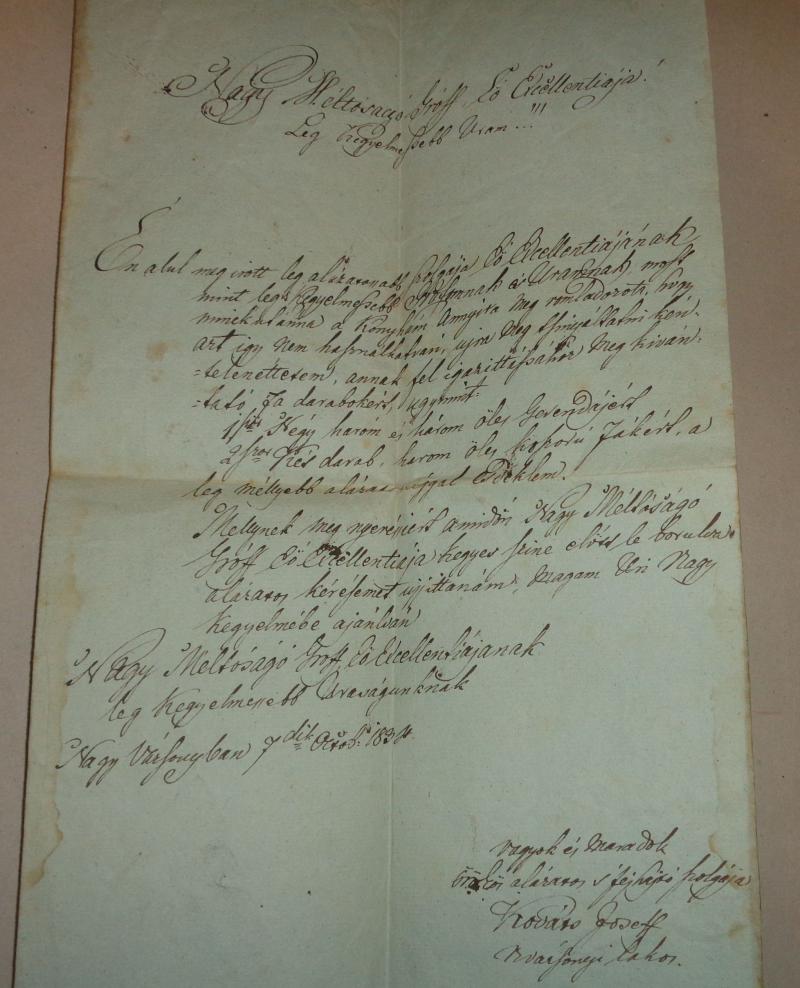 Nagy Méltóságó Gróff, Eő Excellentiája!
Leg Kegyelmessebb Uram...!!!
Én alul meg irott leg alázatosabb szolgája Eő Excellentiájának
mint leg Kegyelmessebb Grófomnak és Uramnak, most
minekutánna a Konyhám annyira meg romladozott, hogy
azt igy nem használhatván, ujra meg
=telenéttetem, annak fel igazittássához meg kiván=
=tató fa darabokért, ugymint:
1ször Négy három és három öles Gerendájért
2szor Kés darab, három öles koszorú fákért, a
leg méllyebb alázatossággal esdeklem.
Mellynek meg nyeréséért amidőn Nagy Méltóságó
Gróff Eő Excellentiája kegyes szine előtt le borulva
alázatos kérésemet ujjittanám, magam Úri Nagy
Kegyelmébe ajánlván
Nagy Méltóságó Gróff, Eő Excellentiájanak
leg Kegyelmessebb Uraságunknak
Nagy Vársonyban 7dik Octob: 1834.
vagyok és maradok
örökös alázatos s fejhajtó szolgája
Kováts Joseff
N vársonyi lakos.